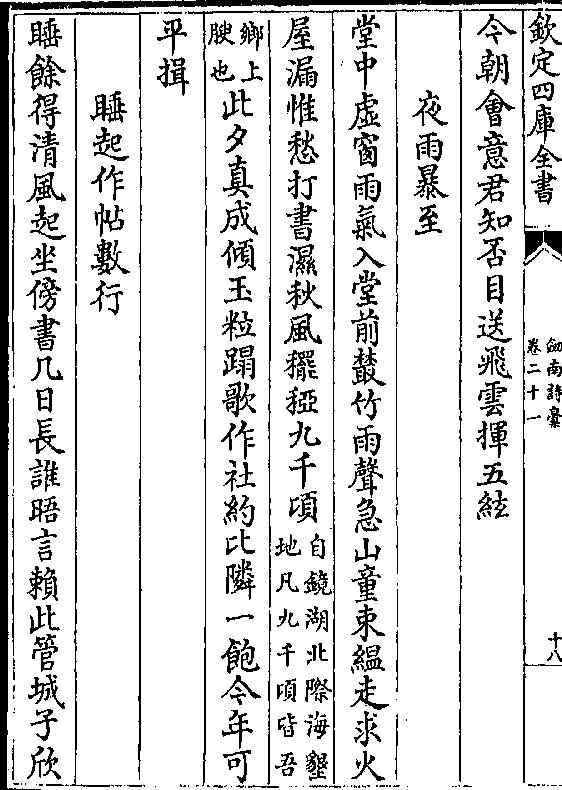 欽定四庫全書
劍南詩藁
卷二十一
十八
今朝會意君知否目送飛雲揮五絃
夜雨暴至
堂中虛窗雨氣入堂前叢竹雨聲急山童束緼走求火
屋漏惟愁打書濕秋風䆉稏九千頃自鏡湖北際海墾
地凡九千頃皆吾
鄉上
腴也此夕真成傾玉粒蹋歌作社約比隣一飽今年可
平揖
睡起作帖數行
睡餘得清風起坐傍書几日長誰晤言賴此管城子欣